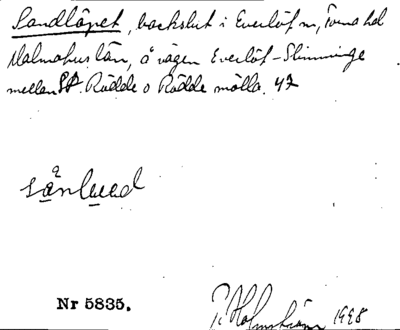 Sandlåpet, backslut i Everlöf sn, Torna hd
Malmöhus län, å vägen Everlöf - Slimminge
mellan St. Rödde o Rödde mölla. 47
Nr 5835.
P. Holmström 1998